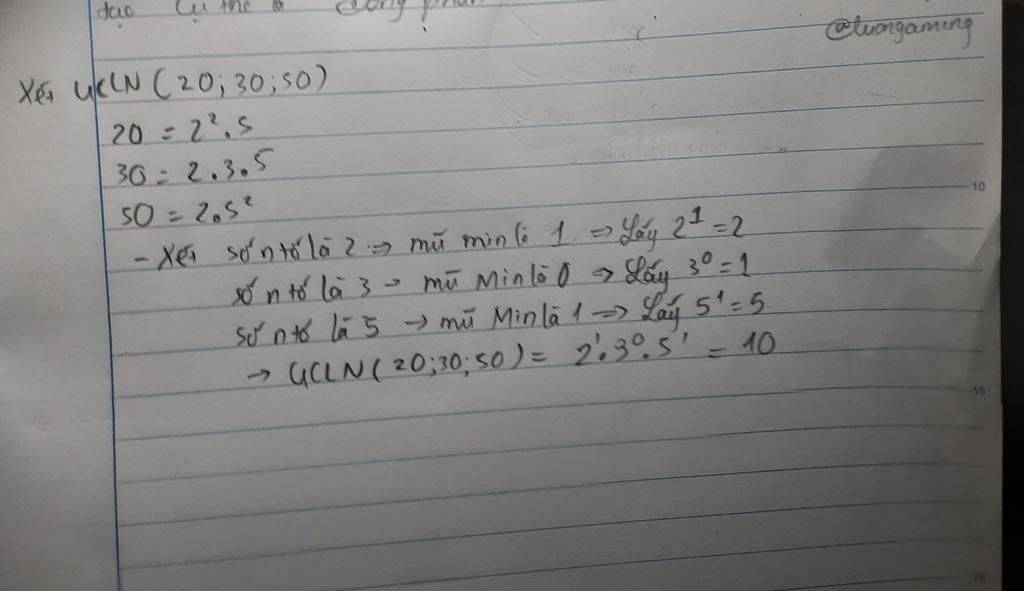 tạo Cụ thể là
@luongaming
Xét ƯCLN (20; 30; 50)
20 = 2².5
30 = 2.3.5
50 = 2.5²
- Xét số ntố là 2 => mũ min là 1 => Lấy 2¹ = 2
số n tố là 3 → mũ Min là 0 => Lấy 3⁰ = 1
số n tố là 5 → mũ Min là 1 => Lấy 5¹ = 5
→ ƯCLN (20; 30; 50) = 2¹.3⁰.5¹ = 10
10
15
20